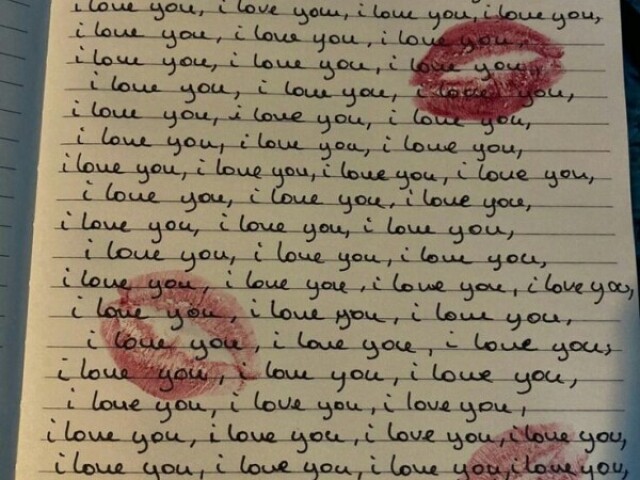 i love you, i love you, i love you, i love you,
i love you, i love you, i love you,
i love you, i love you, i love you,
i love you, i love you, i love you,
i love you, i love you, i love you,
i love you, i love you, i love you,
i love you, i love you, i love you, i love you,
i love you, i love you, i love you,
i love you, i love you, i love you,
i love you, i love you, i love you,
i love you, i love you, i love you, i love you,
i love you, i love you, i love you,
i love you, i love you, i love you,
i love you, i love you, i love you,
i love you, i love you, i love you,
i love you, i love you, i love you, i love you,
i love you, i love you, i love you, i love you,